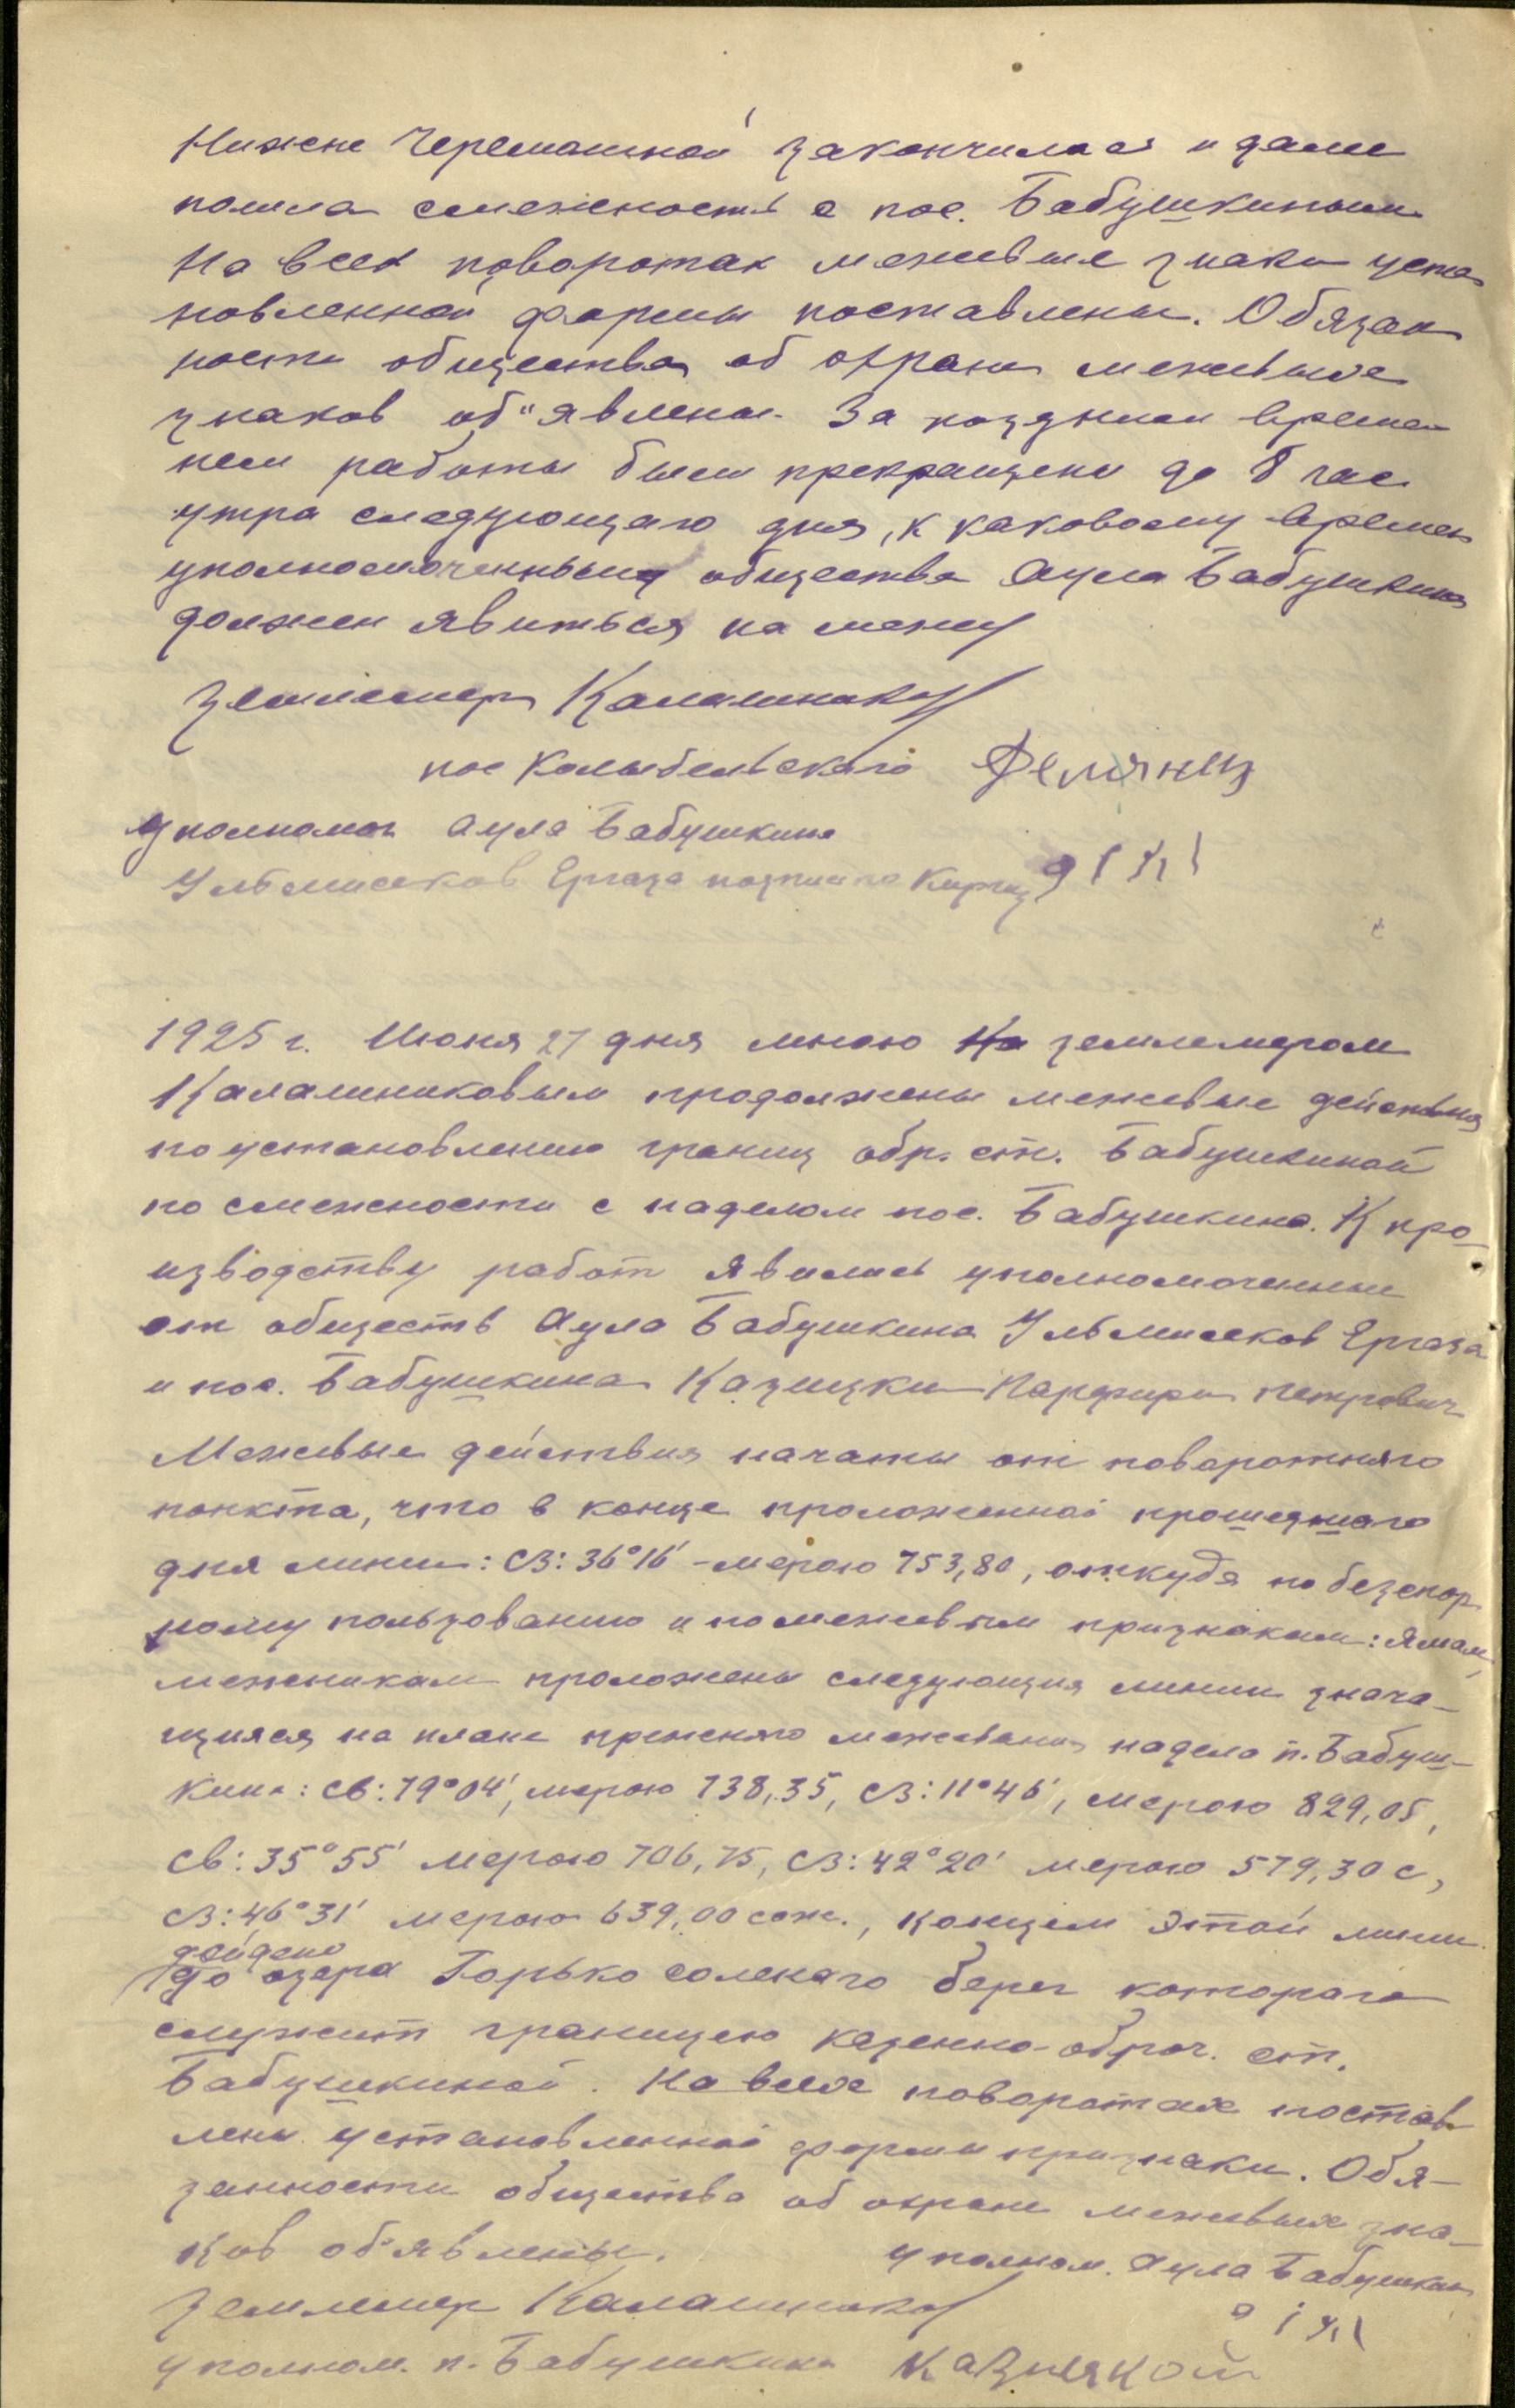 Нижне Черемошной закончилась и далее
пошла смежность с пос. Бабушкиным
На всех поворотах межевые знаки уста
новленной формы поставлены. Обязан
ности общества об охране межевых
знаков об"явлены. За поздним време
нем работы были прекращены до 8 час
утра следующаго дня, к каковому времени
уполномоченный общества Аула Бабушкина
должен явиться на межу
Землемер Калашников
пос Колыбельскаго
Уполномоч Аула Бабушкина
Ульмисеков Ергаза по
1925 г. Июня 27 дня мною На землемером
Калашниковым продолжены межевые действия
по установлению границ обр. ст. Бабушкиной
по смежности с наделом пос. Бабушкина. К про-
изводству работ явились уполномоченные
от обществ Аула Бабушкина Ульмисеков Ергаза
и пос. Бабушкина Казицки Парфири Петрович
Межевые действия начаты от поворотняго
пункта, что в конце проложенной прошедшаго
дня линии: СЗ: 36°16' - мерою 753,80, откуда по безспор
ному пользованию и по межевым признакам: Ямам,
межникам проложены следующия линии знача-
щияся на плане прежняго межевания надела п. Бабуш-
кина: СВ: 79°04', мерою 738,35, СЗ: 11°46', мерою 829,05,
СВ: 35°55' мерою 706,75, СЗ: 42°20' мерою 579,30 с,
СЗ: 46°31' мерою 639,00 саж., концем этой линии
дойдено
до озера Горько соленаго берег котораго
служит границею казенно-оброч. ст.
Бабушкиной. На всех поворотах постав
лены установленной формы признаки. Обя-
занности общества об охране межевых зна-
ков об'явлены.
уполном. Аула Бабушкин
Землемер Калашников
уполном. п. Бабушкина